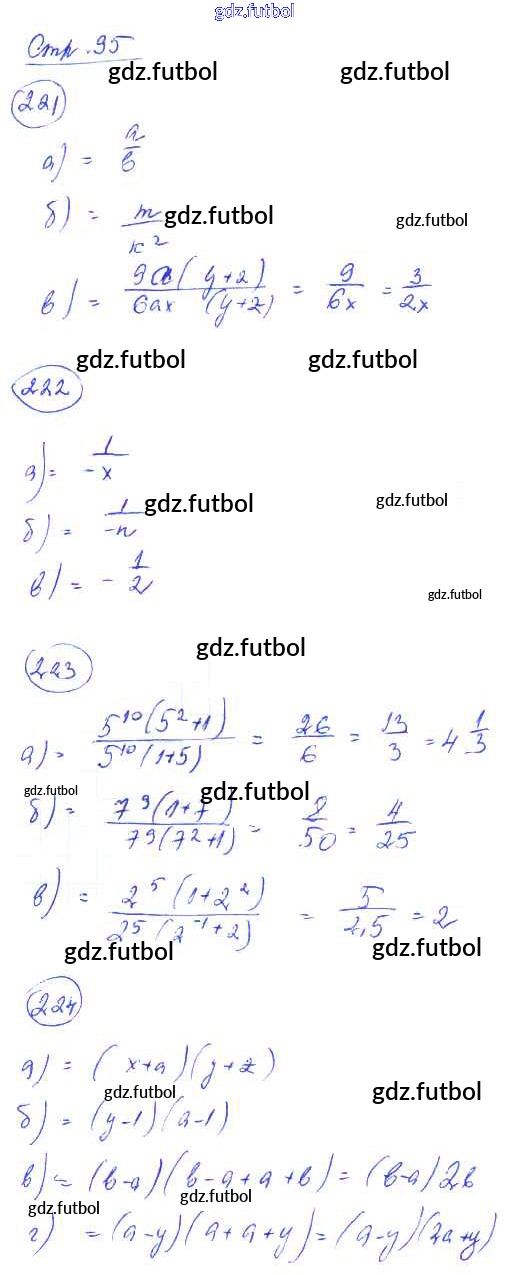 gdz.futbol
Стр. 95
gdz.futbol gdz.futbol
221
а) = a/b
б) = m/k² gdz.futbol gdz.futbol
в) = 9a(y+z)/6ax(y+z) = 9/6x = 3/2x
gdz.futbol gdz.futbol
222
а) = 1/-x
gdz.futbol gdz.futbol
б) = 1/-n
в) = -1/2
gdz.futbol
gdz.futbol
223
а) = 5¹⁰(5²+1)/5¹⁰(1+5) = 26/6 = 13/3 = 4 1/3
gdz.futbol gdz.futbol
б) = 7⁹(1+7)/7⁹(7²+1) = 8/50 = 4/25
в) = 2⁵(1+2²)/2⁵(2⁻¹+2) = 5/2,5 = 2
gdz.futbol gdz.futbol
224
а) = (x+a)(y+z)
gdz.futbol gdz.futbol
б) = (y-1)(a-1)
в) = (b-a)(b-a+a+b) = (b-a)2b
gdz.futbol gdz.futbol
г) = (a-y)(a+a+y) = (a-y)(2a+y)